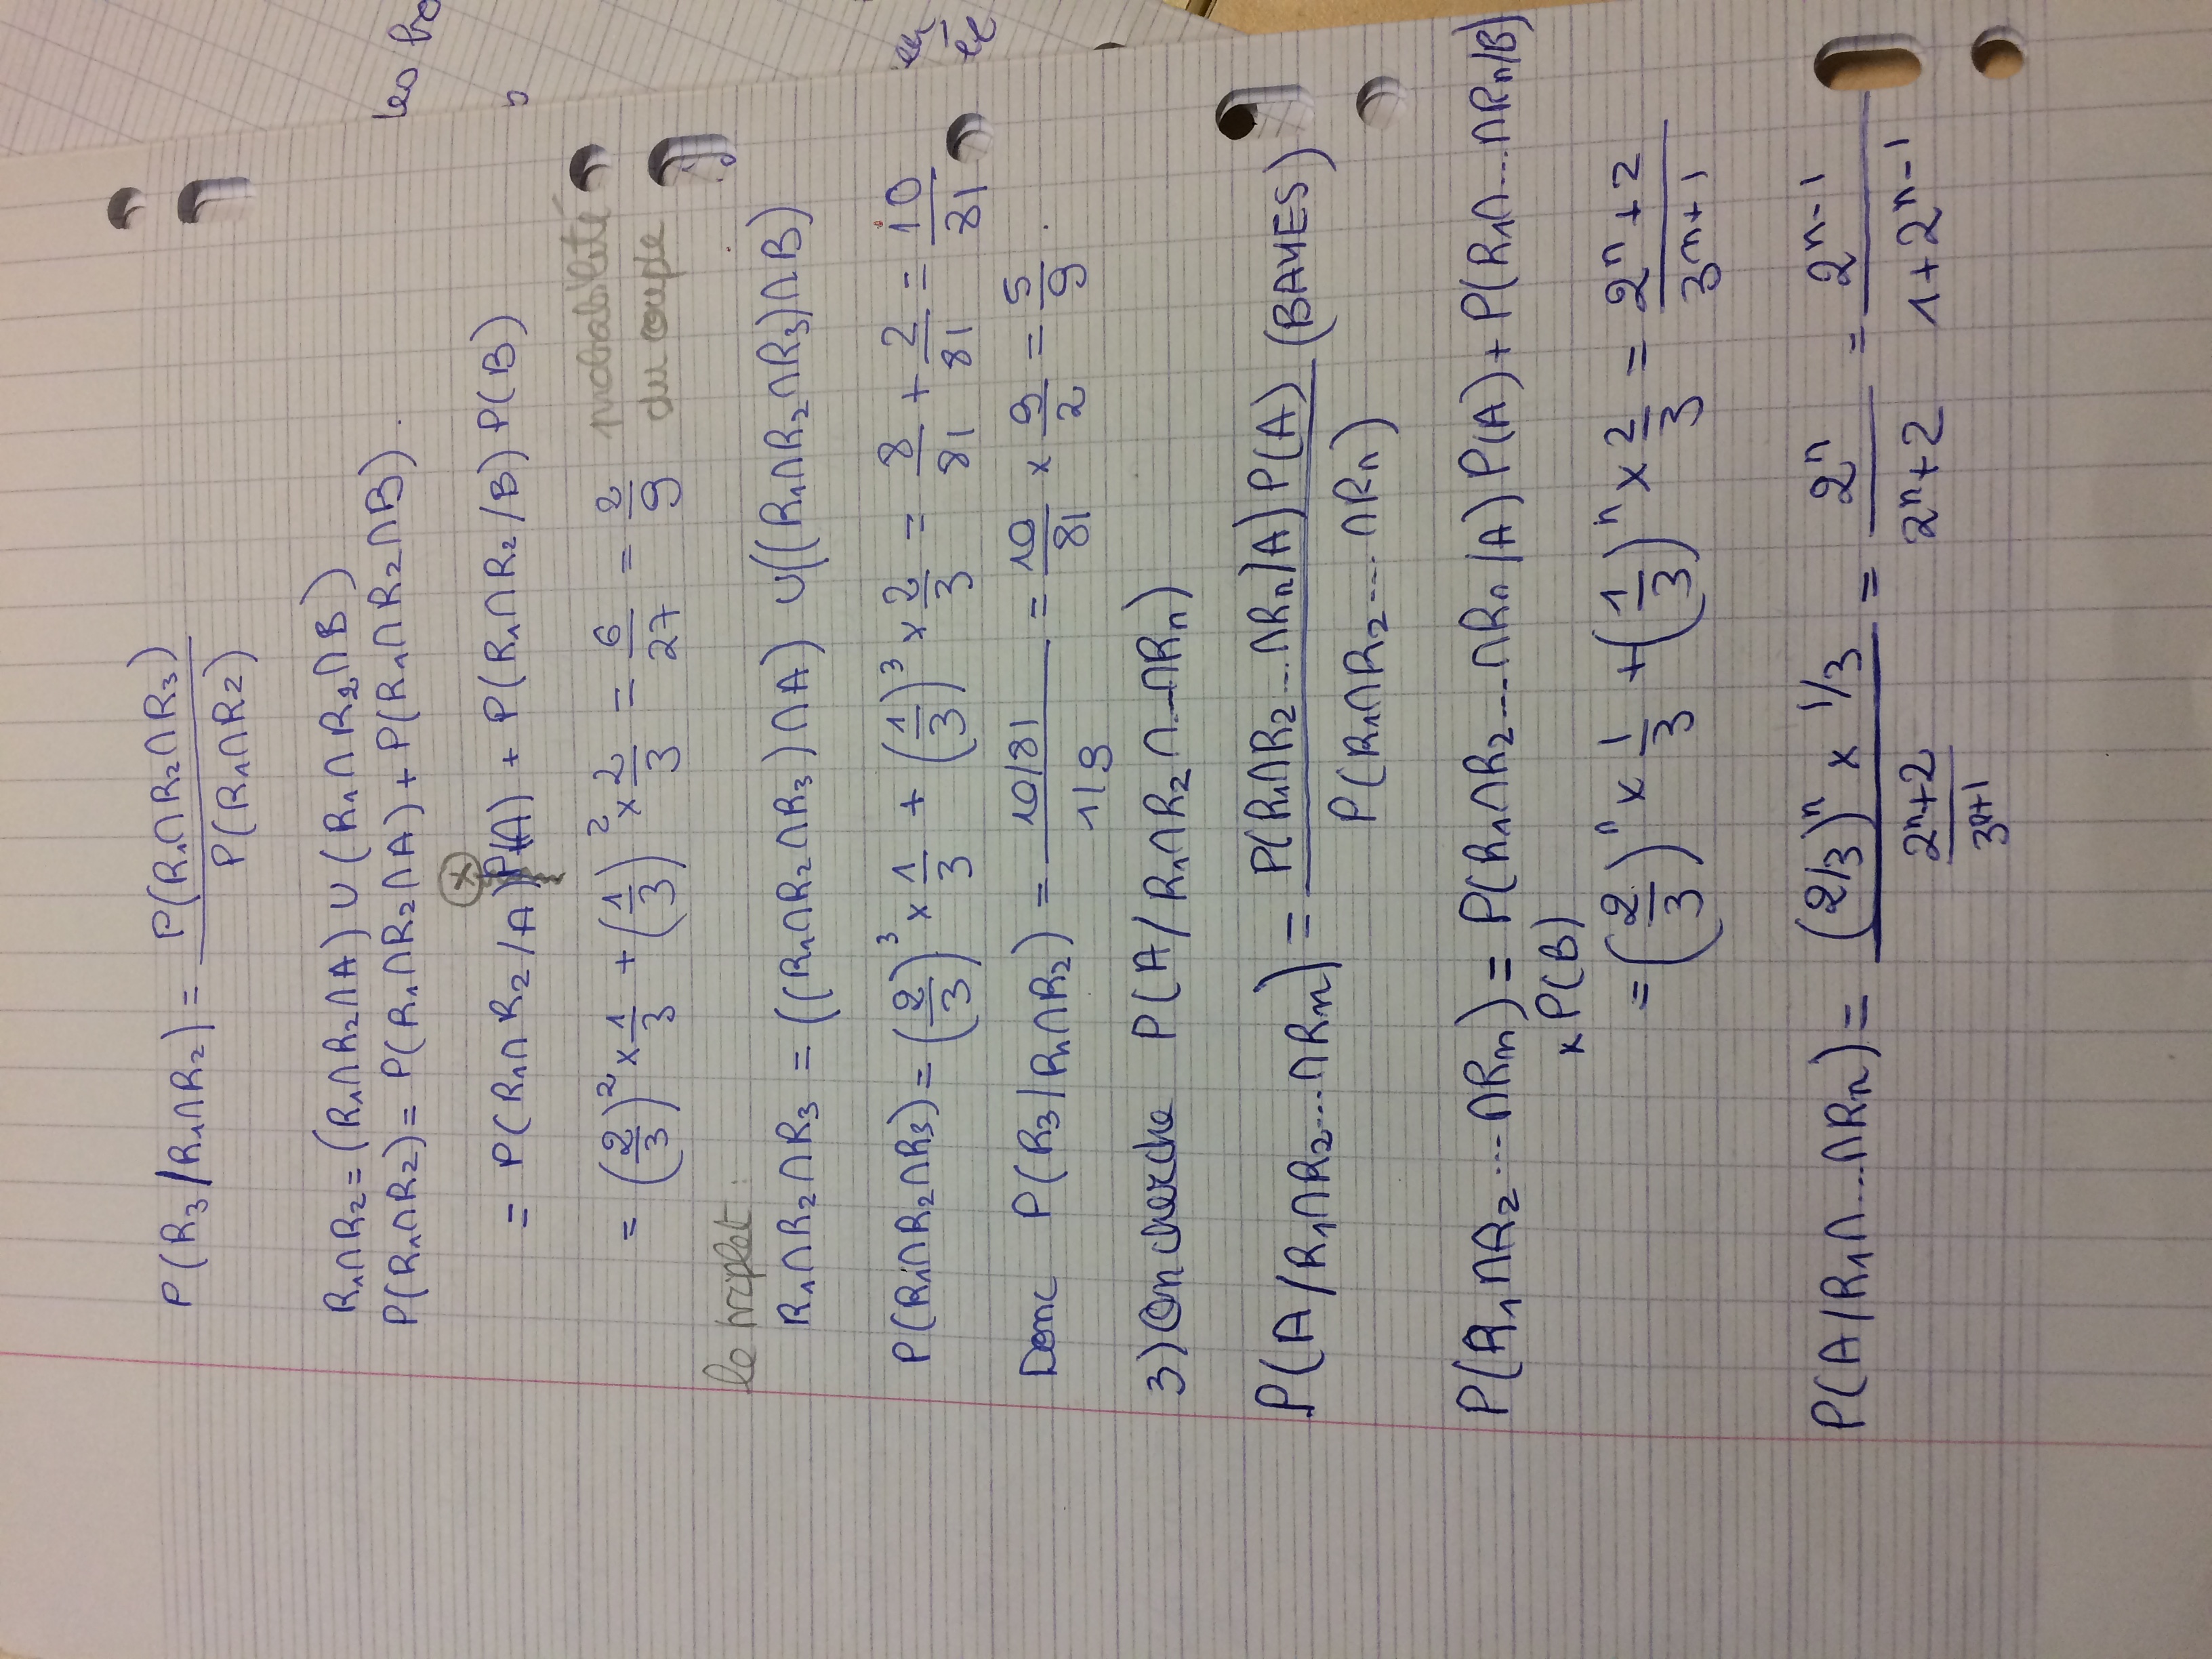 P(R₃/R₁∩R₂) = P(R₁∩R₂∩R₃) / P(R₁∩R₂)
R₁∩R₂ = (R₁∩R₂∩A) ∪ (R₁∩R₂∩B)
P(R₁∩R₂) = P(R₁∩R₂∩A) + P(R₁∩R₂∩B).
×
= P(R₁∩R₂/A) P(A) + P(R₁∩R₂/B) P(B)
= (2/3)² × 1/3 + (1/3)² × 2/3 = 6/27 = 2/9 probabilité du couple
le triplet :
R₁∩R₂∩R₃ = ((R₁∩R₂∩R₃)∩A) ∪ ((R₁∩R₂∩R₃)∩B)
P(R₁∩R₂∩R₃) = (2/3)³ × 1/3 + (1/3)³ × 2/3 = 8/81 + 2/81 = 10/81
Donc P(R₃/R₁∩R₂) = (10/81) / (1/9) = 10/81 × 9/2 = 5/9.
3) On cherche P(A/R₁∩R₂∩...∩Rₙ)
P(A/R₁∩R₂...∩Rₙ) = P(R₁∩R₂...∩Rₙ/A) P(A) / P(R₁∩R₂...∩Rₙ) (BAYES)
P(R₁∩R₂...∩Rₙ) = P(R₁∩R₂...∩Rₙ/A) P(A) + P(R₁∩...∩Rₙ/B)
× P(B)
= (2/3)ⁿ × 1/3 + (1/3)ⁿ × 2/3 = (2ⁿ+2) / 3ⁿ⁺¹
P(A/R₁∩...∩Rₙ) = ((2/3)ⁿ × 1/3) / ((2ⁿ+2)/3ⁿ⁺¹) = 2ⁿ / (2ⁿ+2) = 2ⁿ⁻¹ / (1+2ⁿ⁻¹)